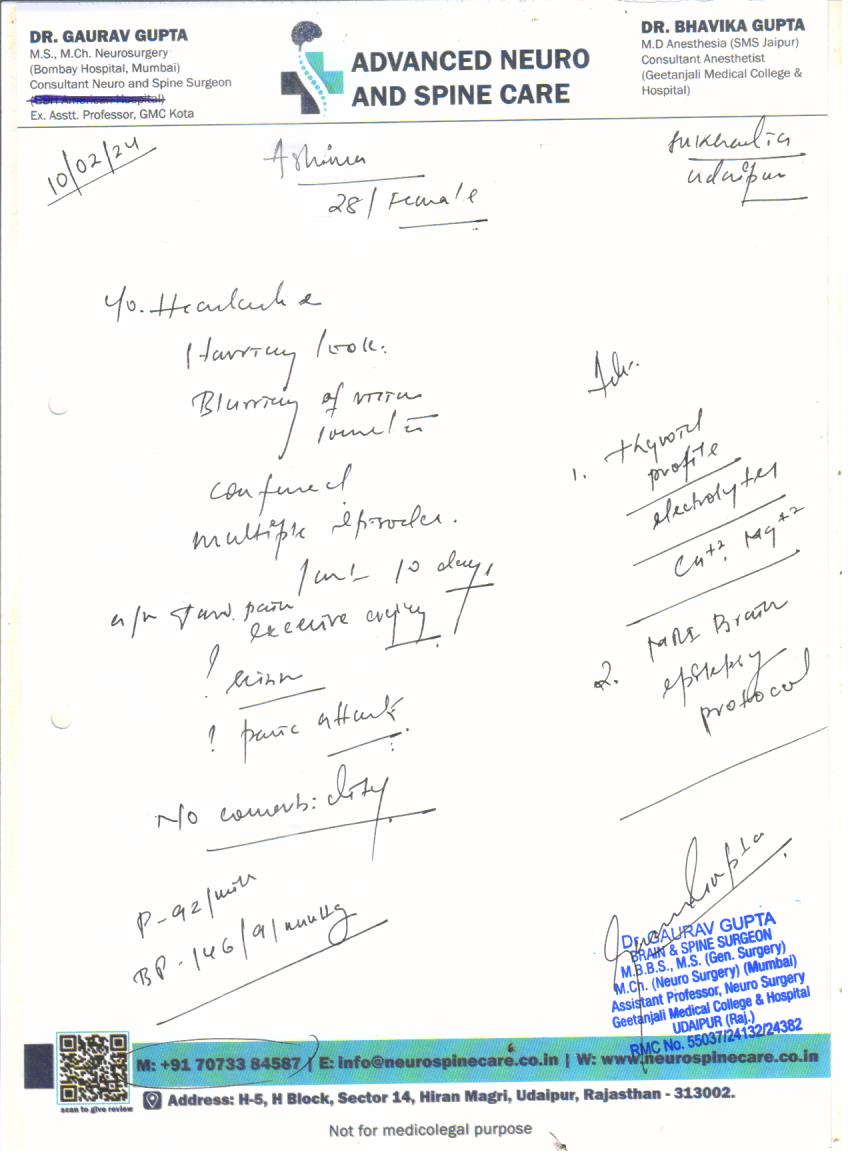 DR. GAURAV GUPTA
M.S., M.Ch. Neurosurgery
(Bombay Hospital, Mumbai)
Consultant Neuro and Spine Surgeon
(GBH American Hospital)
Ex. Asstt. Professor, GMC Kota
ADVANCED NEURO
AND SPINE CARE
DR. BHAVIKA GUPTA
M.D Anesthesia (SMS Jaipur)
Consultant Anesthetist
(Geetanjali Medical College &
Hospital)
10/02/24
28/Female
Udaipur
Headache
look.
Blurring of vision
confused
multiple episodes.
10 days
pain
excessive crying
? panic attack
No comorbidity
P-92/min
BP-146/91mmHg
Adv.
1. thyroid
profile
electrolytes
Ca+2, Mg+2
2. MRI Brain
epilepsy
protocol
Dr. GAURAV GUPTA
BRAIN & SPINE SURGEON
M.B.B.S., M.S. (Gen. Surgery)
M.Ch. (Neuro Surgery) (Mumbai)
Assistant Professor, Neuro Surgery
Geetanjali Medical College & Hospital
UDAIPUR (Raj.)
RMC No. 55037/24132/24382
M: +91 70733 84587 | E: info@neurospinecare.co.in | W: www.neurospinecare.co.in
scan to give review
Address: H-5, H Block, Sector 14, Hiran Magri, Udaipur, Rajasthan - 313002.
Not for medicolegal purpose